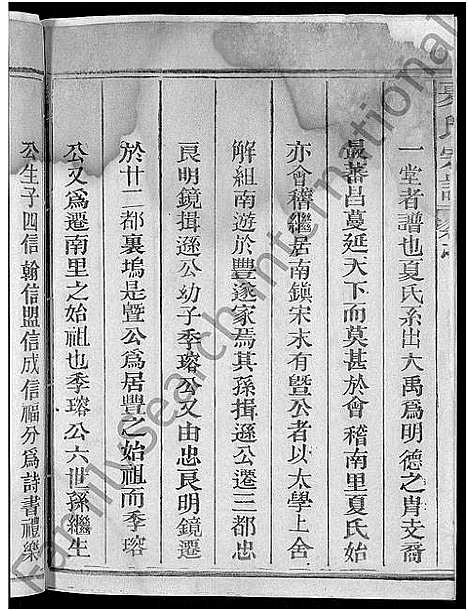 夏氏宗譜
一堂者譜也夏氏系出大禹爲明德之胄支裔
最蕃昌蔓延天下而莫甚於會稽南里夏氏始
亦會稽繼居南鎮宋末有暨公者以太學上舍
解組南遊於豐遂家焉其孫揖遜公遷三都忠
良明鏡揖遜公幼子季瑢公又由忠良明鏡遷
於廿二都裏塢是暨公爲居豐之始祖而季瑢
公又爲遷南里之始祖也季瑢公六世孫繼生
公生子四信翰信盟信成信福分爲詩書禮樂
FamilySearch International